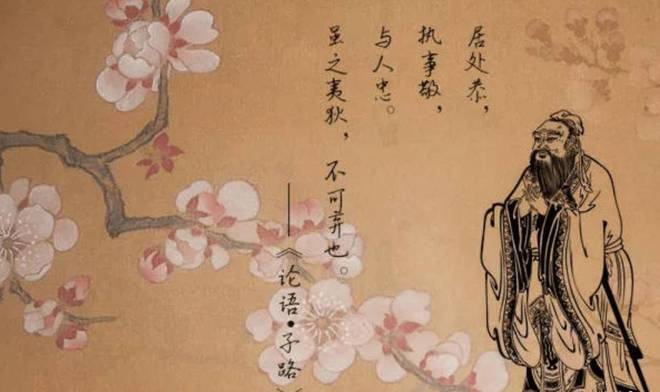 居处恭，
执事敬，
与人忠。
虽之夷狄，不可弃也。
——《论语·子路